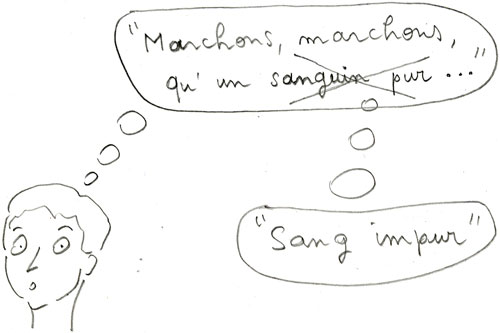 "Marchons, marchons,
qu'un sanguin pur ..."
"Sang impur"